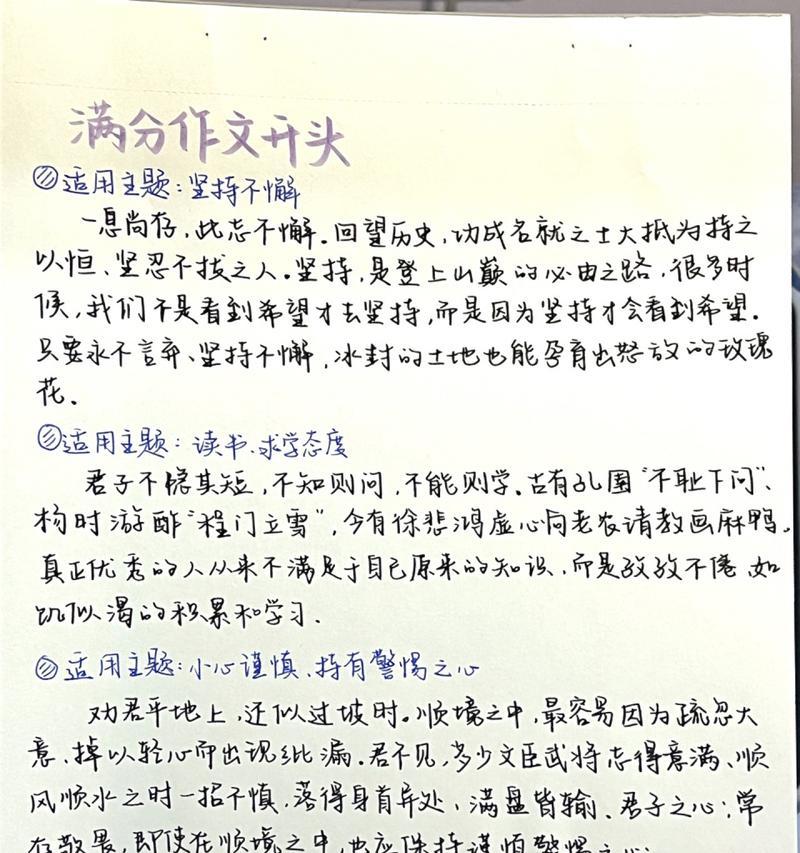 满分作文开头
适用主题：坚持不懈
一息尚存，此志不懈。回望历史，功成名就之士大抵为持之
以恒、坚忍不拔之人。坚持，是登上山巅的必由之路，很多时
候，我们不是看到希望才去坚持，而是因为坚持才会看到希望。
只要永不言弃、坚持不懈，冰封的土地也能孕育出怒放的玫瑰
花。
适用主题：读书、求学态度
君子不隐其短，不知则问，不能则学。古有孔圉“不耻下问”、
杨时游酢“程门立雪”，今有徐悲鸿虚心向老农请教画麻鸭。
真正优秀的人从来不满足于自己原来的知识，而是孜孜不倦、如
饥似渴的积累和学习。
适用主题：小心谨慎、持有警惕之心
劝君平地上，还似过坡时。顺境之中，最容易因为疏忽大
意、掉以轻心而出现纰漏。君不见，多少文臣武将志得意满、顺
风顺水之时一招不慎，落得身首异处、满盘皆输。君子之心：常
存敬畏，即使在顺境之中，也应保持谨慎警惕之心；